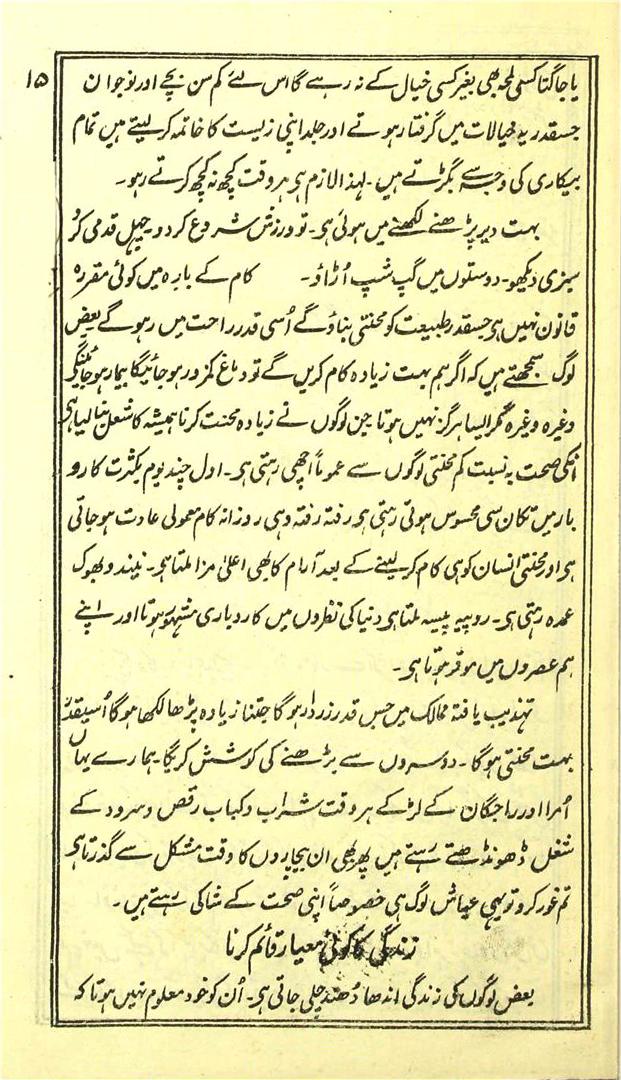 ۱۵
یا جاگتا کسی لمحہ بھی بغیر کسی خیال کے نہ رہے گا اس لئے کم سن بچے اور نوجوان
جسقدر یہ خیالات میں گرفتار ہوتے اور جلد اپنی زیست کا خاتمہ کر لیتے ہیں تمام
بیکاری کی وجہ سے بگڑتے ہیں۔ لہذا لازم ہی ہر وقت کچھ نہ کچھ کرتے رہو۔
بہت دیر پڑھنے لکھنے میں ہوئی ہی۔ تو ورزش شروع کردو۔ چہل قدمی کرو
سبزی دیکھو۔ دوستوں میں گپ شپ اُڑاؤ۔ کام کے بارہ میں کوئی مقررہ
قانون نہیں ہی جسقدر طبیعت کو محنتی بناؤ گے اُسی قدر راحت میں رہو گے بعض
لوگ سمجھتے ہیں کہ اگر ہم بہت زیادہ کام کریں گے تو دماغ کمزور ہو جائیگا بیمار ہو جائینگے
وغیرہ وغیرہ مگر ایسا ہرگز نہیں ہوتا جن لوگوں نے زیادہ محنت کرنا ہمیشہ کا شغل بنا لیا ہی
انکی صحت بہ نسبت کم محنتی لوگوں سے عموماً اچھی رہتی ہی۔ اول چند یوم بکثرت کارو
بار میں تکان سی محسوس ہوتی رہتی ہی رفتہ رفتہ وہی روزانہ کام معمولی عادت ہو جاتی
ہی اور محنتی انسان کو ہی کام کر لینے کے بعد آرام کا بھی اعلیٰ مزا ملتا ہی۔ نیند و بھوک
عمدہ رہتی ہی۔ روپیہ پیسہ ملتا ہی دنیا کی نظروں میں کاروباری مشہور ہوتا اور اپنے
ہم عصروں میں موقر ہوتا ہی۔
تہذیب یافتہ ممالک میں جس قدر زردار ہوگا جتنا زیادہ پڑھا لکھا ہوگا اُسیقدر
بہت محنتی ہوگا۔ دوسروں سے بڑھنے کی کوشش کریگا۔ ہمارے یہاں
اُمرا اور راجگان کے لڑکے ہر وقت شراب و کباب رقص و سرود کے
شغل ڈھونڈھتے رہتے ہیں پھر بھی ان بیچاروں کا وقت مشکل سے گذرتا ہی
تم غور کرو تو یہی عیاش لوگ ہی خصوصاً اپنی صحت کے شاکی رہتے ہیں۔
زندگی کا کوئی معیار قائم کرنا
بعض لوگوں کی زندگی اندھا دُھند چلی جاتی ہی۔ اُن کو خود معلوم نہیں ہوتا کہ